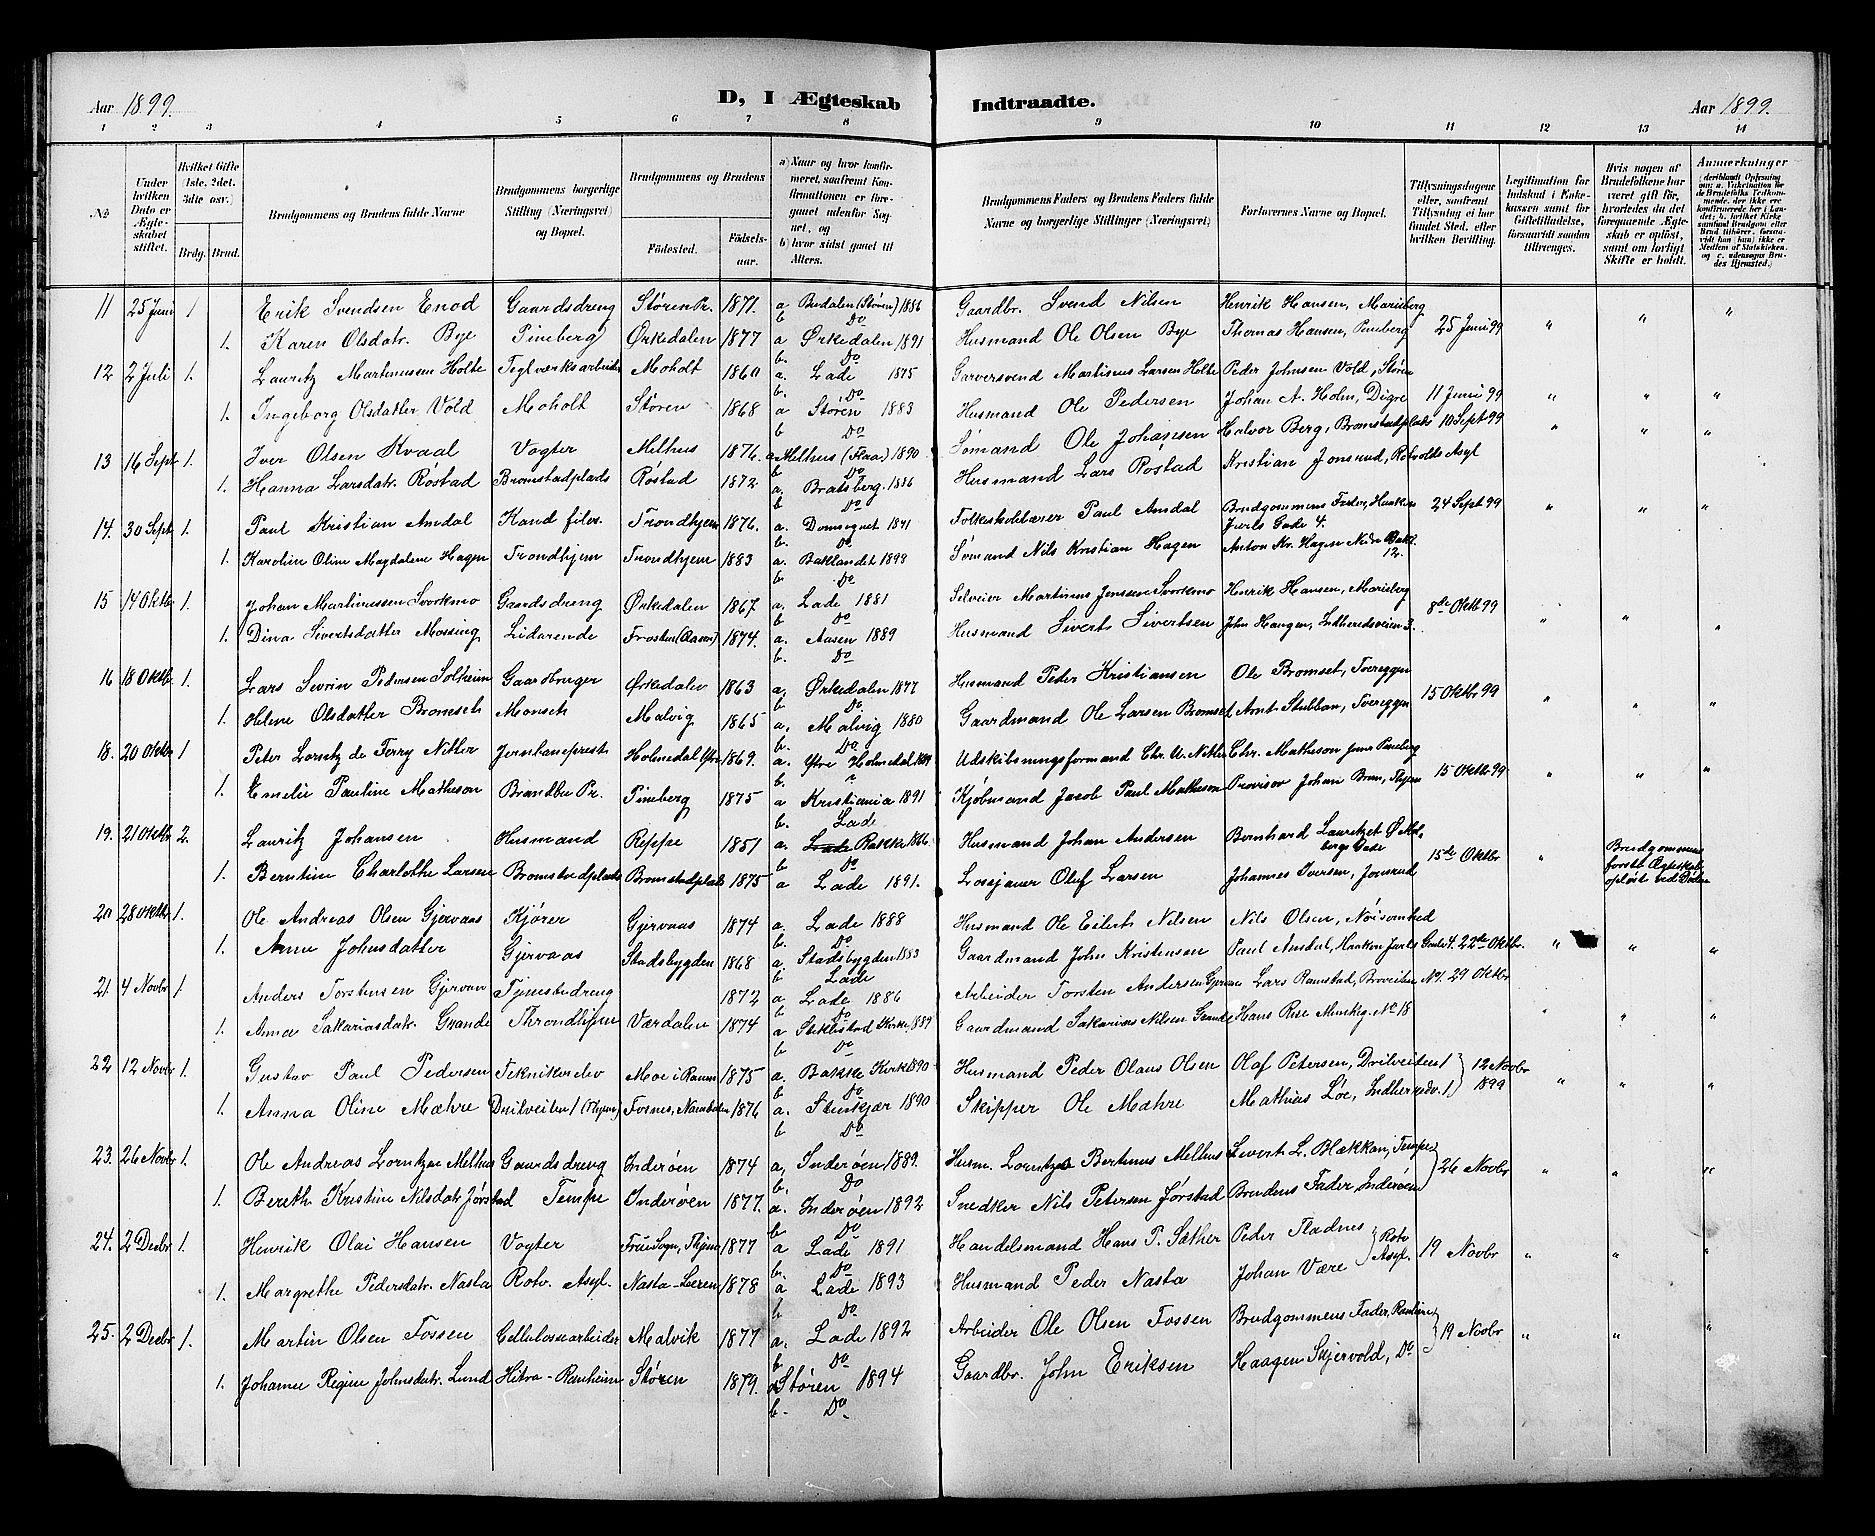 Aar 1899.
D, I Ægteskab Indtraadte.
Aar 1899.
1 2 3 4 5 6 7 8 9 10 11 12 13 14
№
Under hvilken Dato er Ægteskabet stiftet.
Hvilket Gifte (1ste. 2det. 3die osv.)
Brdg. Brud.
Brudgommens og Brudens fulde Navne
Brudgommens borgerlige Stilling (Næringsvei) og Bopæl.
Brudgommens og Brudens
Fødested.
Fødselsaar.
a) Naar og hvor konfirmeret, saafremt Konfirmationen er foregaaet udenfor Sognet, og
b) hvor sidst gaaet til Alters.
Brudgommens Faders og Brudens Faders fulde Navne og borgerlige Stillinger (Næringsvei)
Forlovernes Navne og Bopæl.
Tillysningsdagene eller, saafremt Tillysning ei har fundet Sted, efter hvilken Bevilling.
Legitimation for Indskud i Enkekassen samt for Giftetilladelse, forsaavidt saadan tiltrænges.
Hvis nogen af Brudefolkene har været gift før, hvorledes da det foregaaende Ægteskab er opløst, samt om lovligt Skifte er holdt.
Anmerkninger
11 25 Juni 1 Erik Svendsen Enod Gaardsdreng Støren Pr. 1871. a Budalen (Støren) 1886 Gaardbr. Svend Nilsen Henrik Hansen, Marieberg 25 Juni 99 " " "
b Do
1. Karen Olsdatr. Bye Pineberg Ørkedalen 1877 a Ørkedalen 1891 Husmand Ole Olsen Bye Thomas Hansen, Pineberg
b. Do
12 2 Juli 1. Lauritz Martinusen Holte Teglværksarbeider Moholt 1860 a. Lade 1875 Garversvend Martinus Larsen Holte Peder Johnsen Vold, Støren
b. Do
1. Ingeborg Olsdatter Vold Moholt Støren 1868 a Støren 1883 Husmand Ole Pedersen Johan A. Holm, Digre 11 Juni 99 " " "
b Do
13 16 Sept 1. Iver Olsen Kvaal Vogter Melhus 1876. a Melhus (Flaa) 1890 Sømand Ole Johansen Halvor Berg, Bromstadplads 10 Sept 99 " " "
b Do
1. Hanna Larsdatr. Røstad Bromstadplads Røstad 1872 a. Bratsberg. 1886 Husmand Lars Røstad Kristian Jonsrud, Rotvolds Asyl
b Do
14. 30 Sept 1. Paul Kristian Amdal Kand filos. Trondhjem 1876. a. Domsognet 1891 Folkeskolelærer Paul Amdal Brudgommens Fader, Haakon Jarls Gade 4. 24 Sept 99 " " "
b. Do
1. Karoline Oline Magdalene Hagen Trondhjem Trondhjem 1883 a. Baklandet 1898 Sømand Nils Kristian Hagen Anton Kr. Hagen Nedre Bakl. 12.
b. Do
15 14 Oktb 1. Johan Martinussen Svorkmo Gaardsdreng Ørkedalen 1867 a. Lade 1881 Selveier Martinus Jenssen Svorkmo Henrik Hansen, Marieberg 8de Oktb 99
b Do
1. Dina Sivertsdatter Mossing Lidarende Frosten (Aasen) 1874. a. Aasen 1889 Husmand Sivert Sivertsen John Haugen, Indheredsveien 3.
b. Do
16 18 Oktb 1. Lars Sevrin Pedersen Solheim Gaardbruger Ørkedalen 1863 a, Ørkedalen 1877 Husmand Peder Kristiansen Ole Bromset, Tvereggen 15 Oktbr 99 " " "
b Do
1. Helene Olsdatter Bromseth Monseth Malvig 1865 a, Malvig 1880 Gaardmand Ole Larsen Bromset Arnt Stubban, Tvereggen
b. Do
18. 20 Oktbr 1 Peter Lorntz de Ferry Nitter Jernbaneprest Holmedal Ytre 1869. a. Ytre Holmedal Udskibningsformand Chr. U. Nitter Chr. Matheson Junr Pineberg 15 Oktbr 99 " " "
b.
1. Emelie Pauline Matheson Brandbu Pr. Pineberg 1875 a Kristiania 1891 Kjøbmand Jacob Paul Matheson Provisor Johan Brun, Thjem
b. Lade
19. 21 Oktbr 2. Lauritz Johansen Husmand Reppe 1851 a. Lade Bakke 1866 Husmand Johan Andersen Bernhard Lauritzen Ø Møllebergs Gade 15de Oktbr " Brudgommens første Ægteskab opløst ved Døden
b Do
1. Berntine Charlotte Larsen Bromstadplads Bromstadplads 1875 a Lade 1891. Lossjauer Oluf Larsen Johannes Iversen, Jonsrud
20 28 Oktbr 1. Ole Andreas Olsen Gjervaas Kjører Gjervaas 1874 a. Lade 1888 Husmand Ole Eilert Nilsen Nils Olsen, Nøisomhed
b. Do
1. Anne Johnsdatter Gjervaas Stadsbygden 1868 a. Stadsbygden 1883 Gaardmand John Kristensen Paul Amdal, Haakon Jarls Gade 4. 22de Oktbr. " " "
b Lade
21 4 Novbr 1. Anders Torstensen Gjervan Tjenestedreng 1872 a. Lade 1886 Arbeider Torsten Andersen Gjervan Lars Ramstad, Broveiten No 1. 29 Oktbr
b Do
1. Anna Sakariasdatr. Grande Throndhjem Værdalen 1874 a Stiklestad Kirke 1889 Gaardmand Sakarias Nilsen Grande Hans Rise Munkeg. No 18 " "
b Do
22 12 Novbr 1. Gustav Paul Pedersen Teknikerelev Moe i Ranen 1875 a. Bakke Kirke 1890 Husmand Peder Olaus Olsen Olaf Petersen, Drilveiten 1 12 Novbr 1899 " " "
b. Do
1. Anna Oline Mæhre Drilveiten 1 (Thjem) Fosnes, Namdalen 1876 a. Stenkjær 1890 Skipper Ole Mæhre Mathias Løe, Indheredsv. 1.
b Do
23. 26 Novbr 1. Ole Andreas Lorntzen Melhus Gaardsdreng Inderøen 1874 a, Inderøen 1889. Husm. Lorntz Bertinus Melhus Sivert L. Blækkan, Tempe 26 Novbr " " "
b. Do
1. Bereth Kristine Nilsdatr Jørstad Tempe Inderøen 1877. a. Inderøen 1892 Snedker Nils Petersen Jørstad Brudens Fader, Inderøen
b Do
24. 2 Decbr 1. Henrik Olai Hansen Vogter Frue Sogn, Thjem 1877 a Lade 1891 Handelsmand Hans P. Sæther Peder Fladnes Rotv Asyl. 19 Novbr " " "
b. Do
1. Margrethe Pedersdatr. Nasta Rotv. Asyl. Nasta-Leren 1878 a Lade 1893 Husmand Peder Nasta Johan Være
b Do
25. 2 Decbr 1. Martin Olsen Fossen Cellulosearbeider Malvik 1877 a. Lade 1892 Arbeider Ole Olsen Fossen Brudgommens Fader, Ranheim 19 Novbr " " "
b Do
1. Johanne Regine Johnsdatr. Lund Hitra-Ranheim Støren 1879. a Støren 1894 Gaardbr. John Eriksen Haagen Skjervold, Do
b. Do